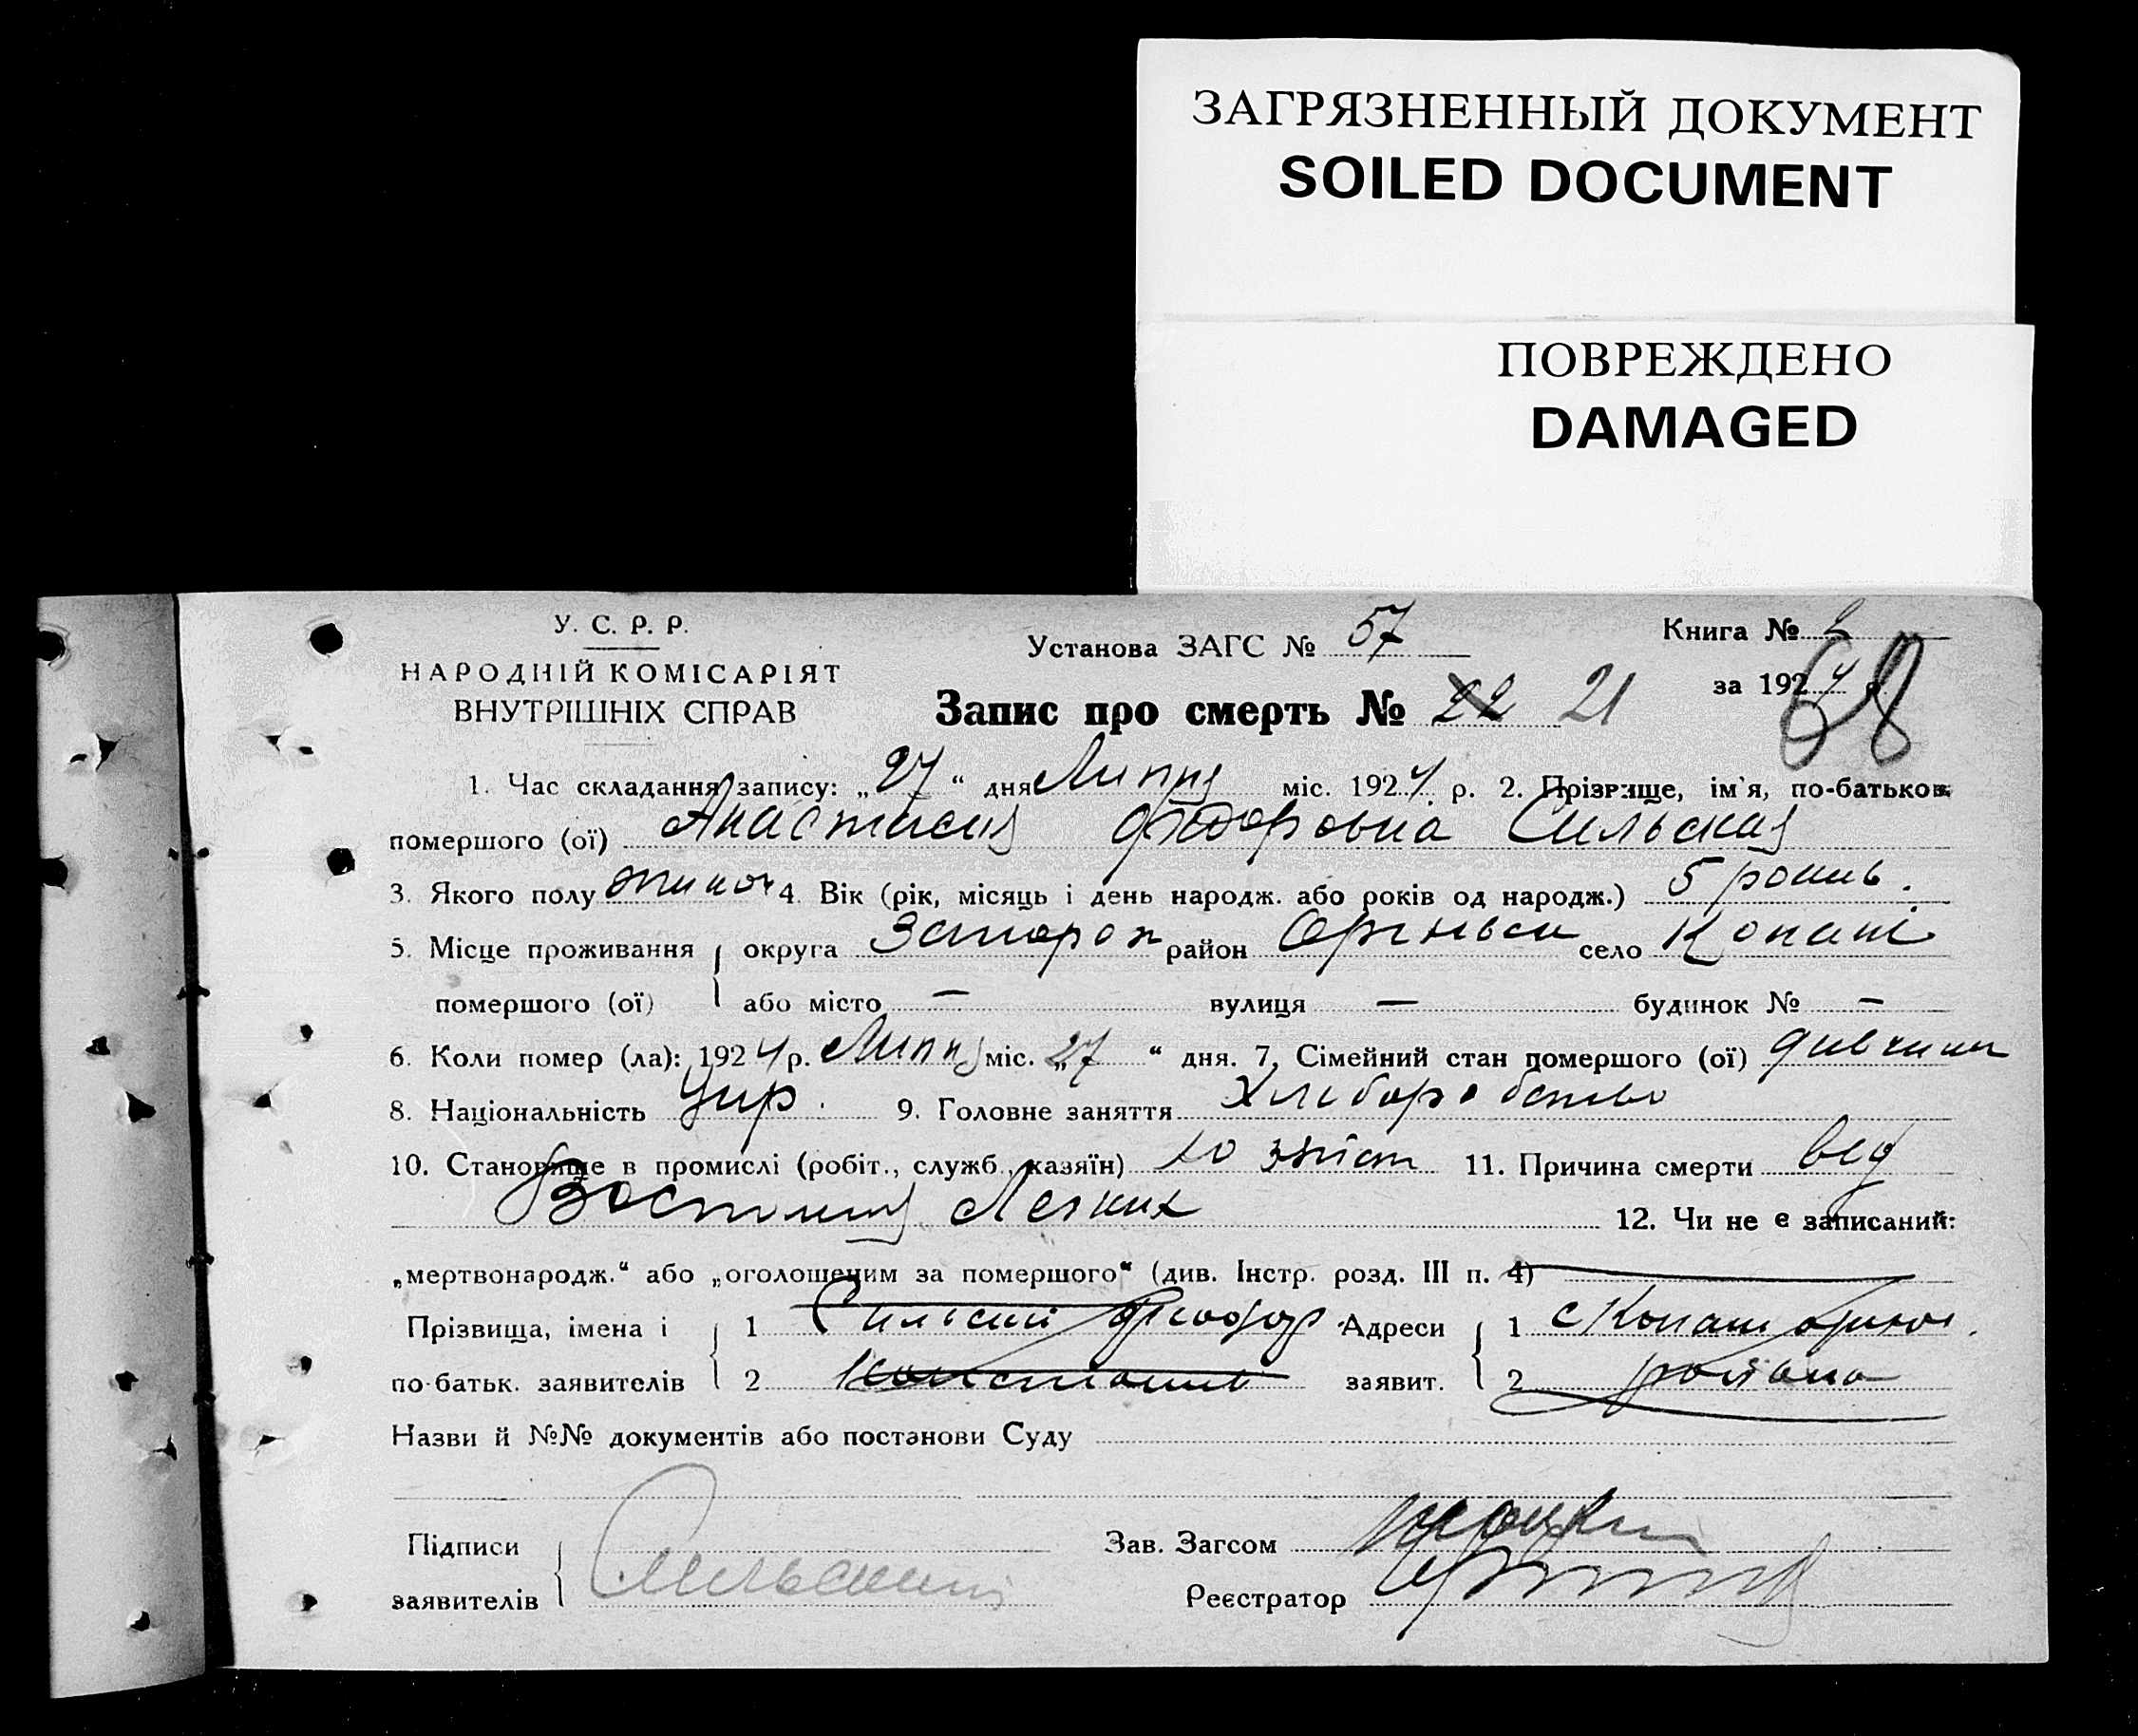 ЗАГРЯЗНЕННЫЙ ДОКУМЕНТ
SOILED DOCUMENT
ПОВРЕЖДЕНО
DAMAGED
У. С. Р. Р.
НАРОДНІЙ КОМІСАРІЯТ
ВНУТРІШНІХ СПРАВ
Установа ЗАГС № 57
Книга № 2
за 1924 р.
68
Запис про смерть № 22 21
1. Час складання запису: „27“ дня Липня міс. 1924 р. 2. Прізвище, ім'я, по-батькові
помершого (ої) Анастасия Федоровна Сильская
3. Якого полу жиноч 4. Вік (рік, місяць і день народж. або років од народж.) 5 рокив.
5. Місце проживання округа Запорож район село Копани
помершого (ої) або місто — вулиця — будинок № —
6. Коли помер (ла): 1924 р. Липня міс. „27“ дня. 7. Сімейний стан помершого (ої) дивчина
8. Національність Укр. 9. Головне заняття Хлиборобство
10. Становище в промислі (робіт., служб., хазяїн) 11. Причина смерти від
Воспиния Легких 12. Чи не є записаний:
„мертвонародж.“ або „оголошеним за помершого“ (див. Інстр. розд. III п. 4)
Прізвища, імена і 1 Сильский Феодор Адреси 1 с Копани
по-батьк. заявителів 2 заявит. 2 району
Назви й №№ документів або постанови Суду
Підписи Зав. Загсом
заявителів Сильский Реєстратор